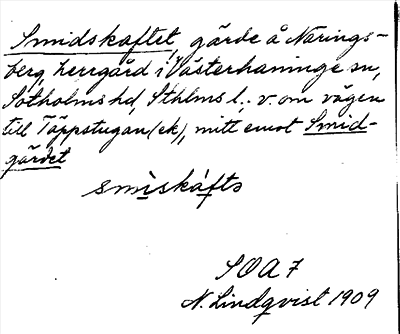 Smidskaftet, gärde å Närings-
berg, herrgård i Västerhaninge sn,
Sotholms hd, Sthlms l.; v. om vägen
till Täppstugan (ek), mitt emot Smid-
gärdet
smiskáfta
SOA 7
N. Lindqvist 1909